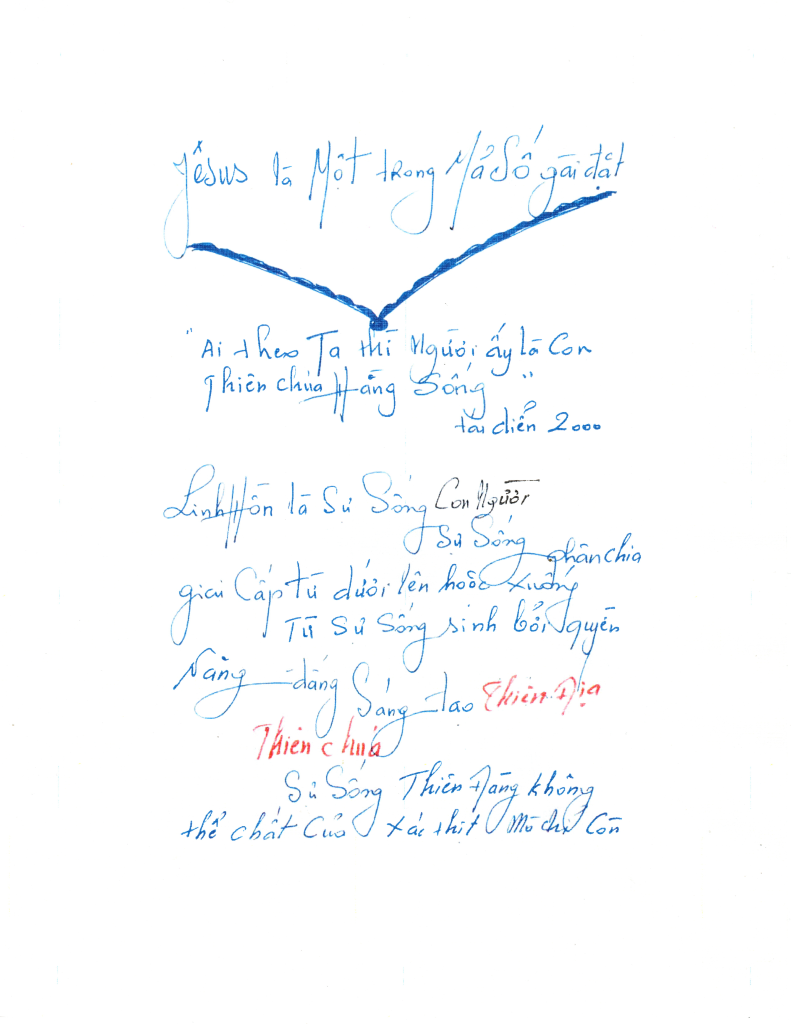 Jêsus là Một trong Mả Số gài đặt
"Ai theo Ta thì Người ấy là Con
Thiên chúa Hằng Sống"
tái diển 2000
Linh Hồn là Sử Sống Con Người
Sự Sống phân chia
giai Cấp từ dưới lên hoặc xuống
Từ Sự Sống sinh bởi quyền
Năng đấng Sáng tạo Thiên Địa
Thiên chúa
Sử Sống Thiên Đàng không
thể chất Của xác thịt Mà chỉ Còn